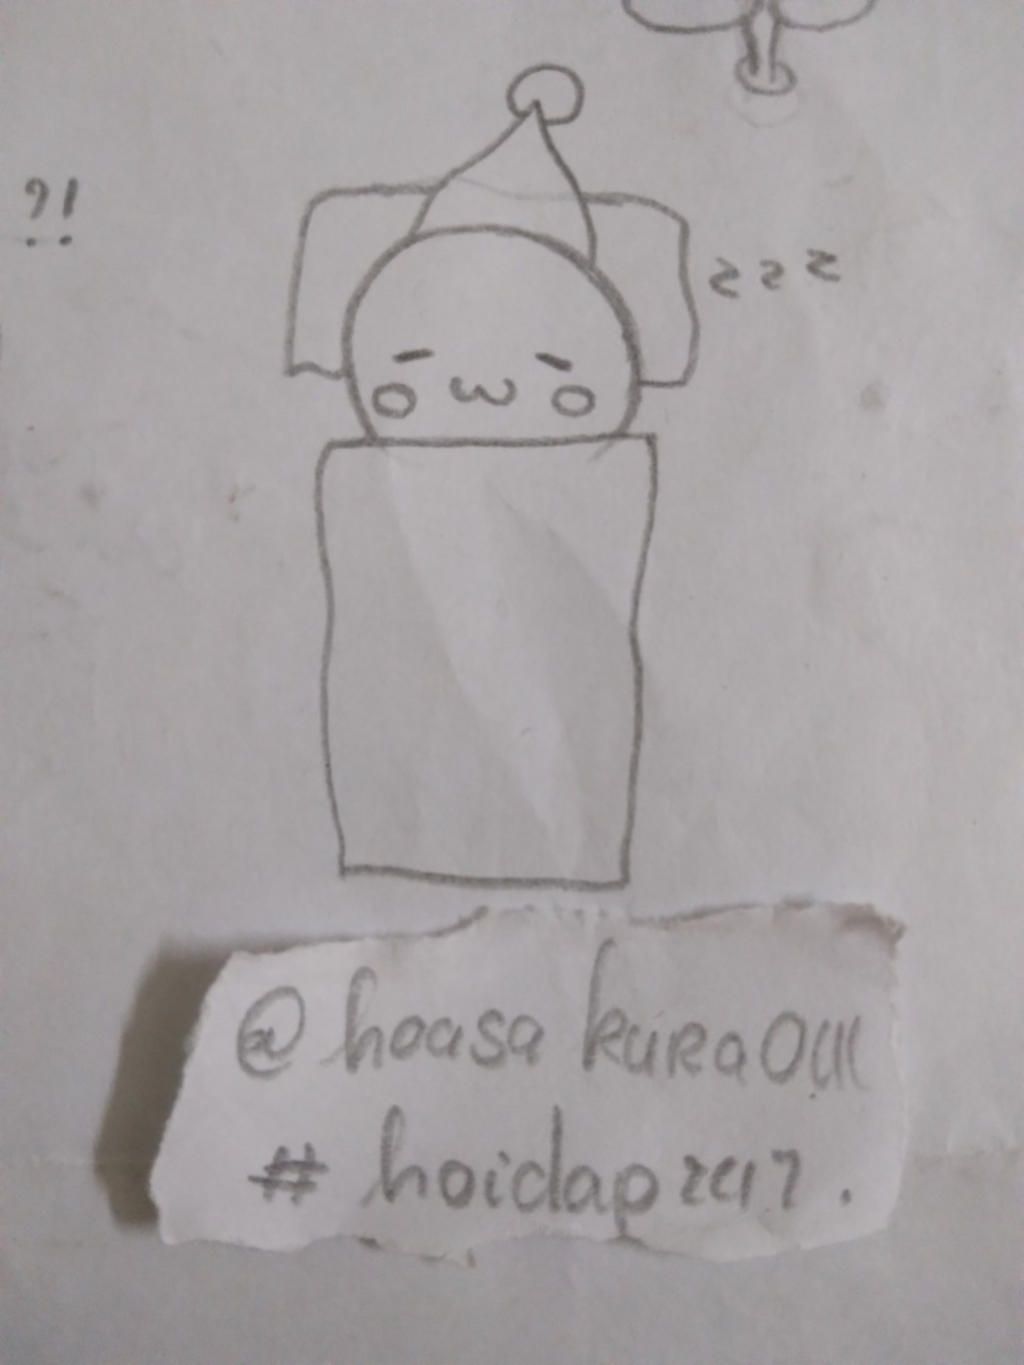 ?!
z z z
@ hoasa kuRa0111
# hoidap247.